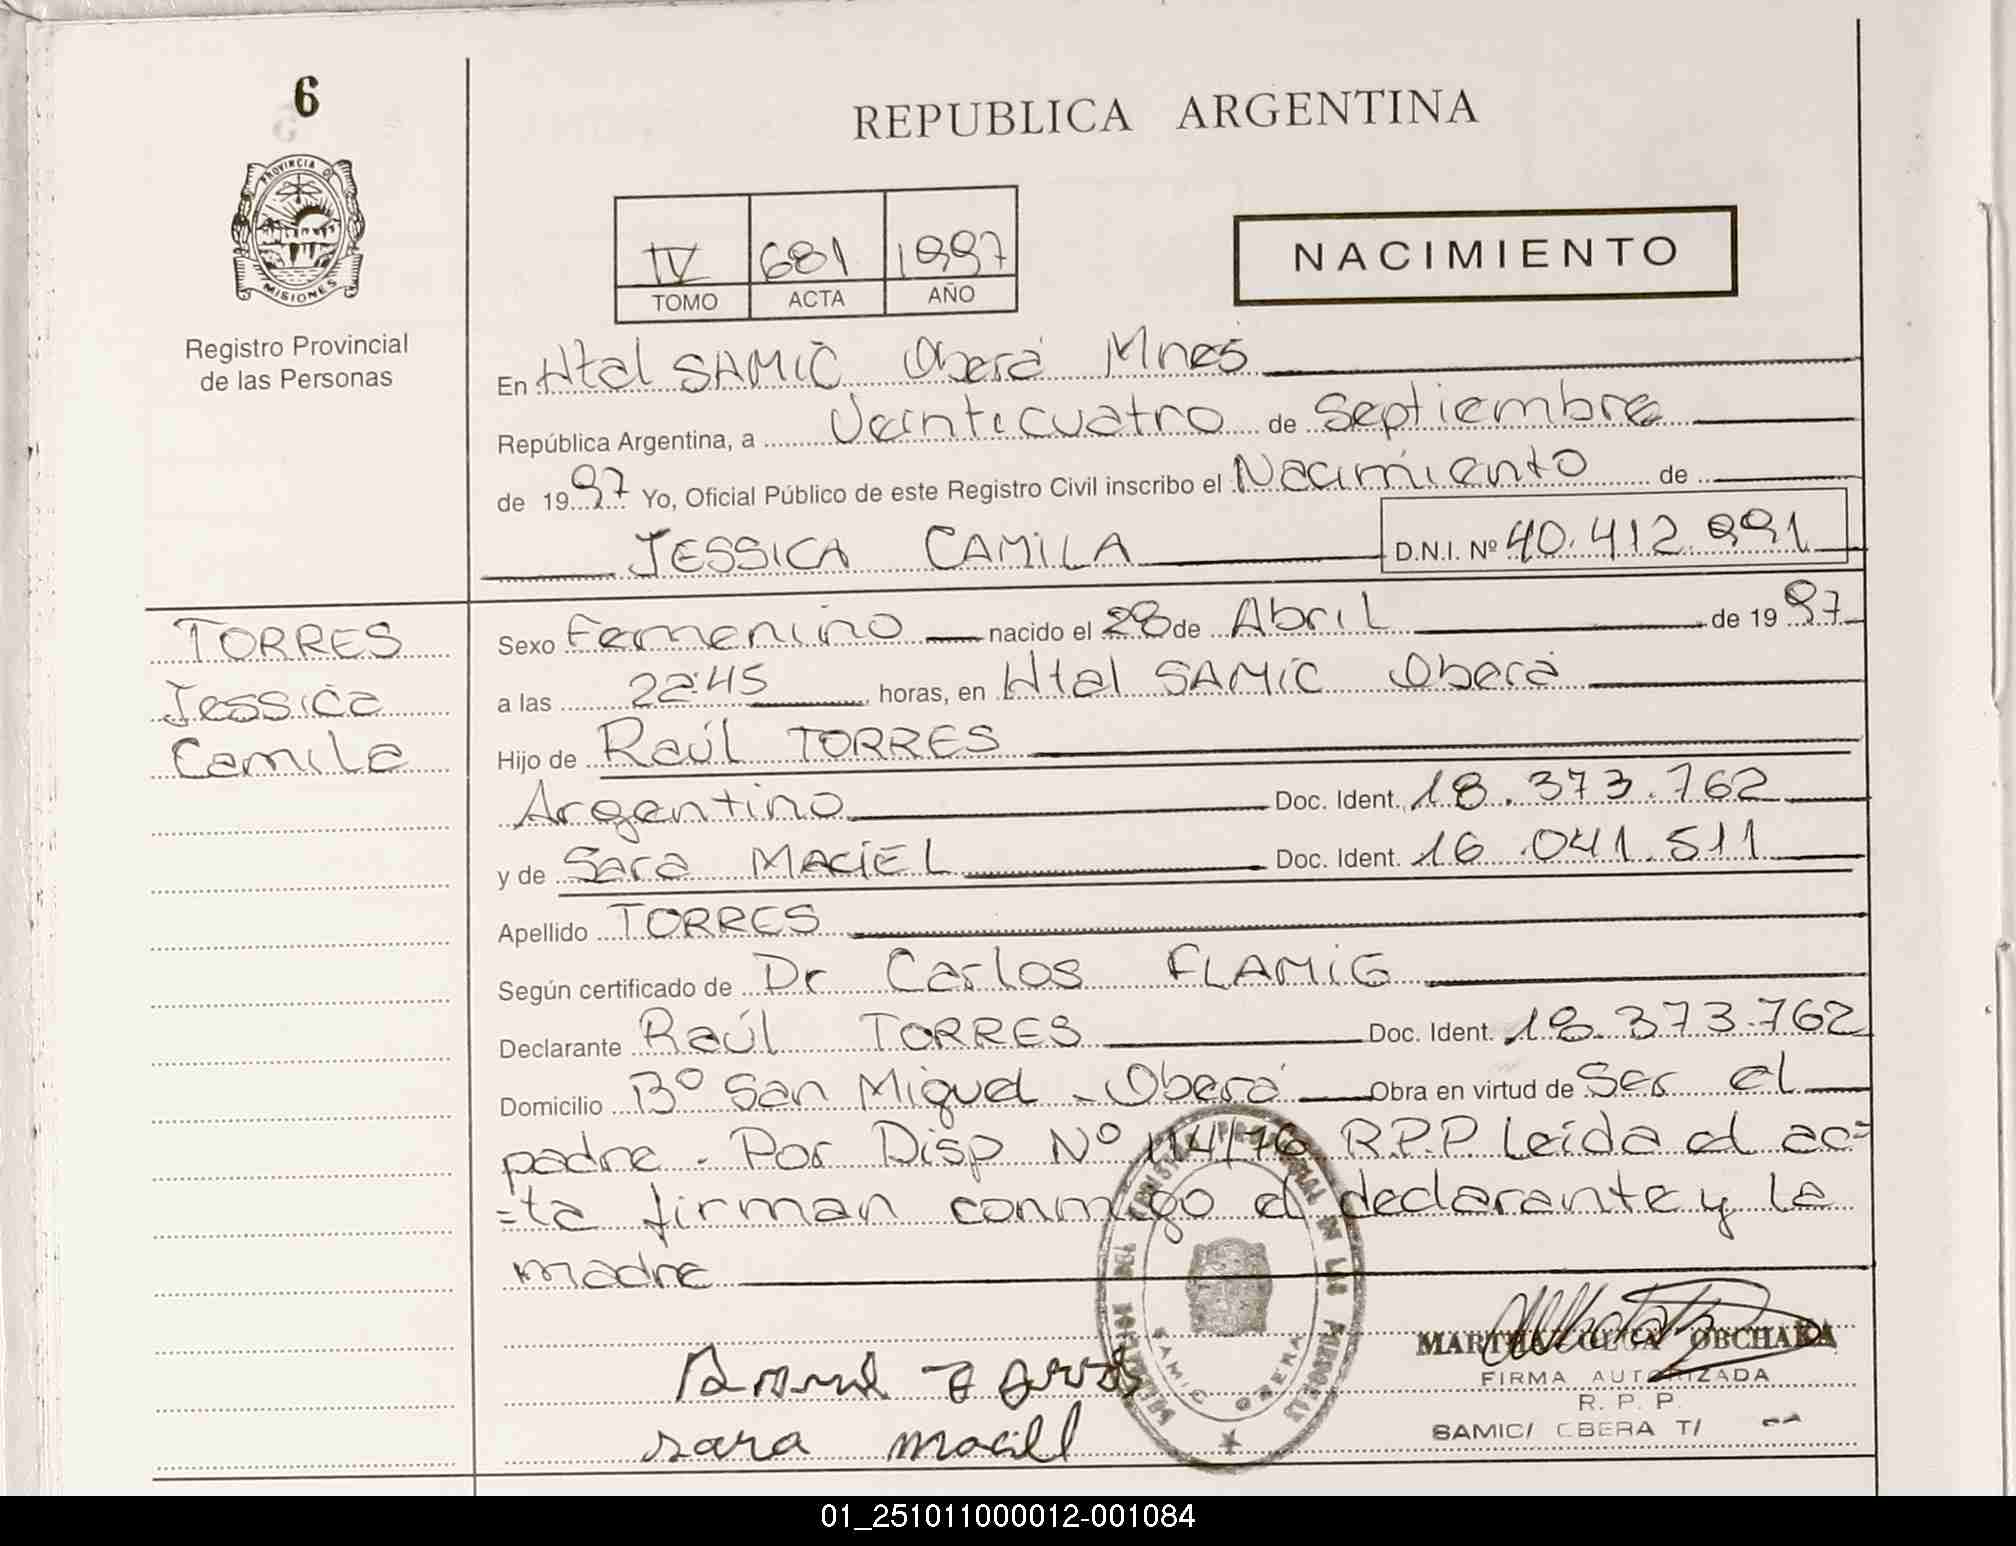 6
REPUBLICA ARGENTINA
PROVINCIA DE
MISIONES
Registro Provincial
de las Personas
IV 681 1997
TOMO ACTA AÑO
NACIMIENTO
En Htal SAMIC Oberá Mnes
República Argentina, a Veinticuatro de Septiembre
de 1997 Yo, Oficial Público de este Registro Civil inscribo el Nacimiento de
JESSICA CAMILA D.N.I. Nº 40.412.991
TORRES
Jessica
Camila
Sexo Femenino nacido el 28 de Abril de 1997
a las 22:45 horas, en Htal SAMIC Oberá
Hijo de Raúl TORRES
Argentino Doc. Ident. 18.373.762
y de Sara MACIEL Doc. Ident. 16.041.511
Apellido TORRES
Según certificado de Dr Carlos FLAMIG
Declarante Raúl TORRES Doc. Ident. 18.373.762
Domicilio Bº San Miguel - Oberá Obra en virtud de Ser el
padre. Por Disp Nº 114/76 R.P.P Leída el ac=
=ta firman conmigo el declarante y la
madre
SAMIC OBERA
MARTHA OLGA OBCHARA
FIRMA AUTORIZADA
R. P. P.
SAMIC/ OBERA T/
sara maciel
01_251011000012-001084